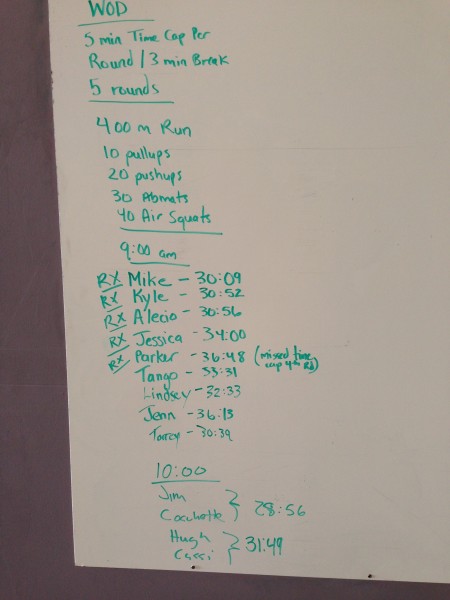 WOD
5 min Time Cap Per
Round / 3 min Break
5 rounds
400 m Run
10 pullups
20 pushups
30 Abmats
40 Air Squats
9:00 am
RX Mike - 30:09
RX Kyle - 30:52
RX Alecio - 30:56
RX Jessica - 34:00
RX Parker - 36:48 (missed time
cap 4th Rd)
Tango - 33:31
Lindsey - 32:33
Jenn - 36:13
Torrey - 30:39
10:00
Jim
} 28:56
Hugh
Cassi } 31:49